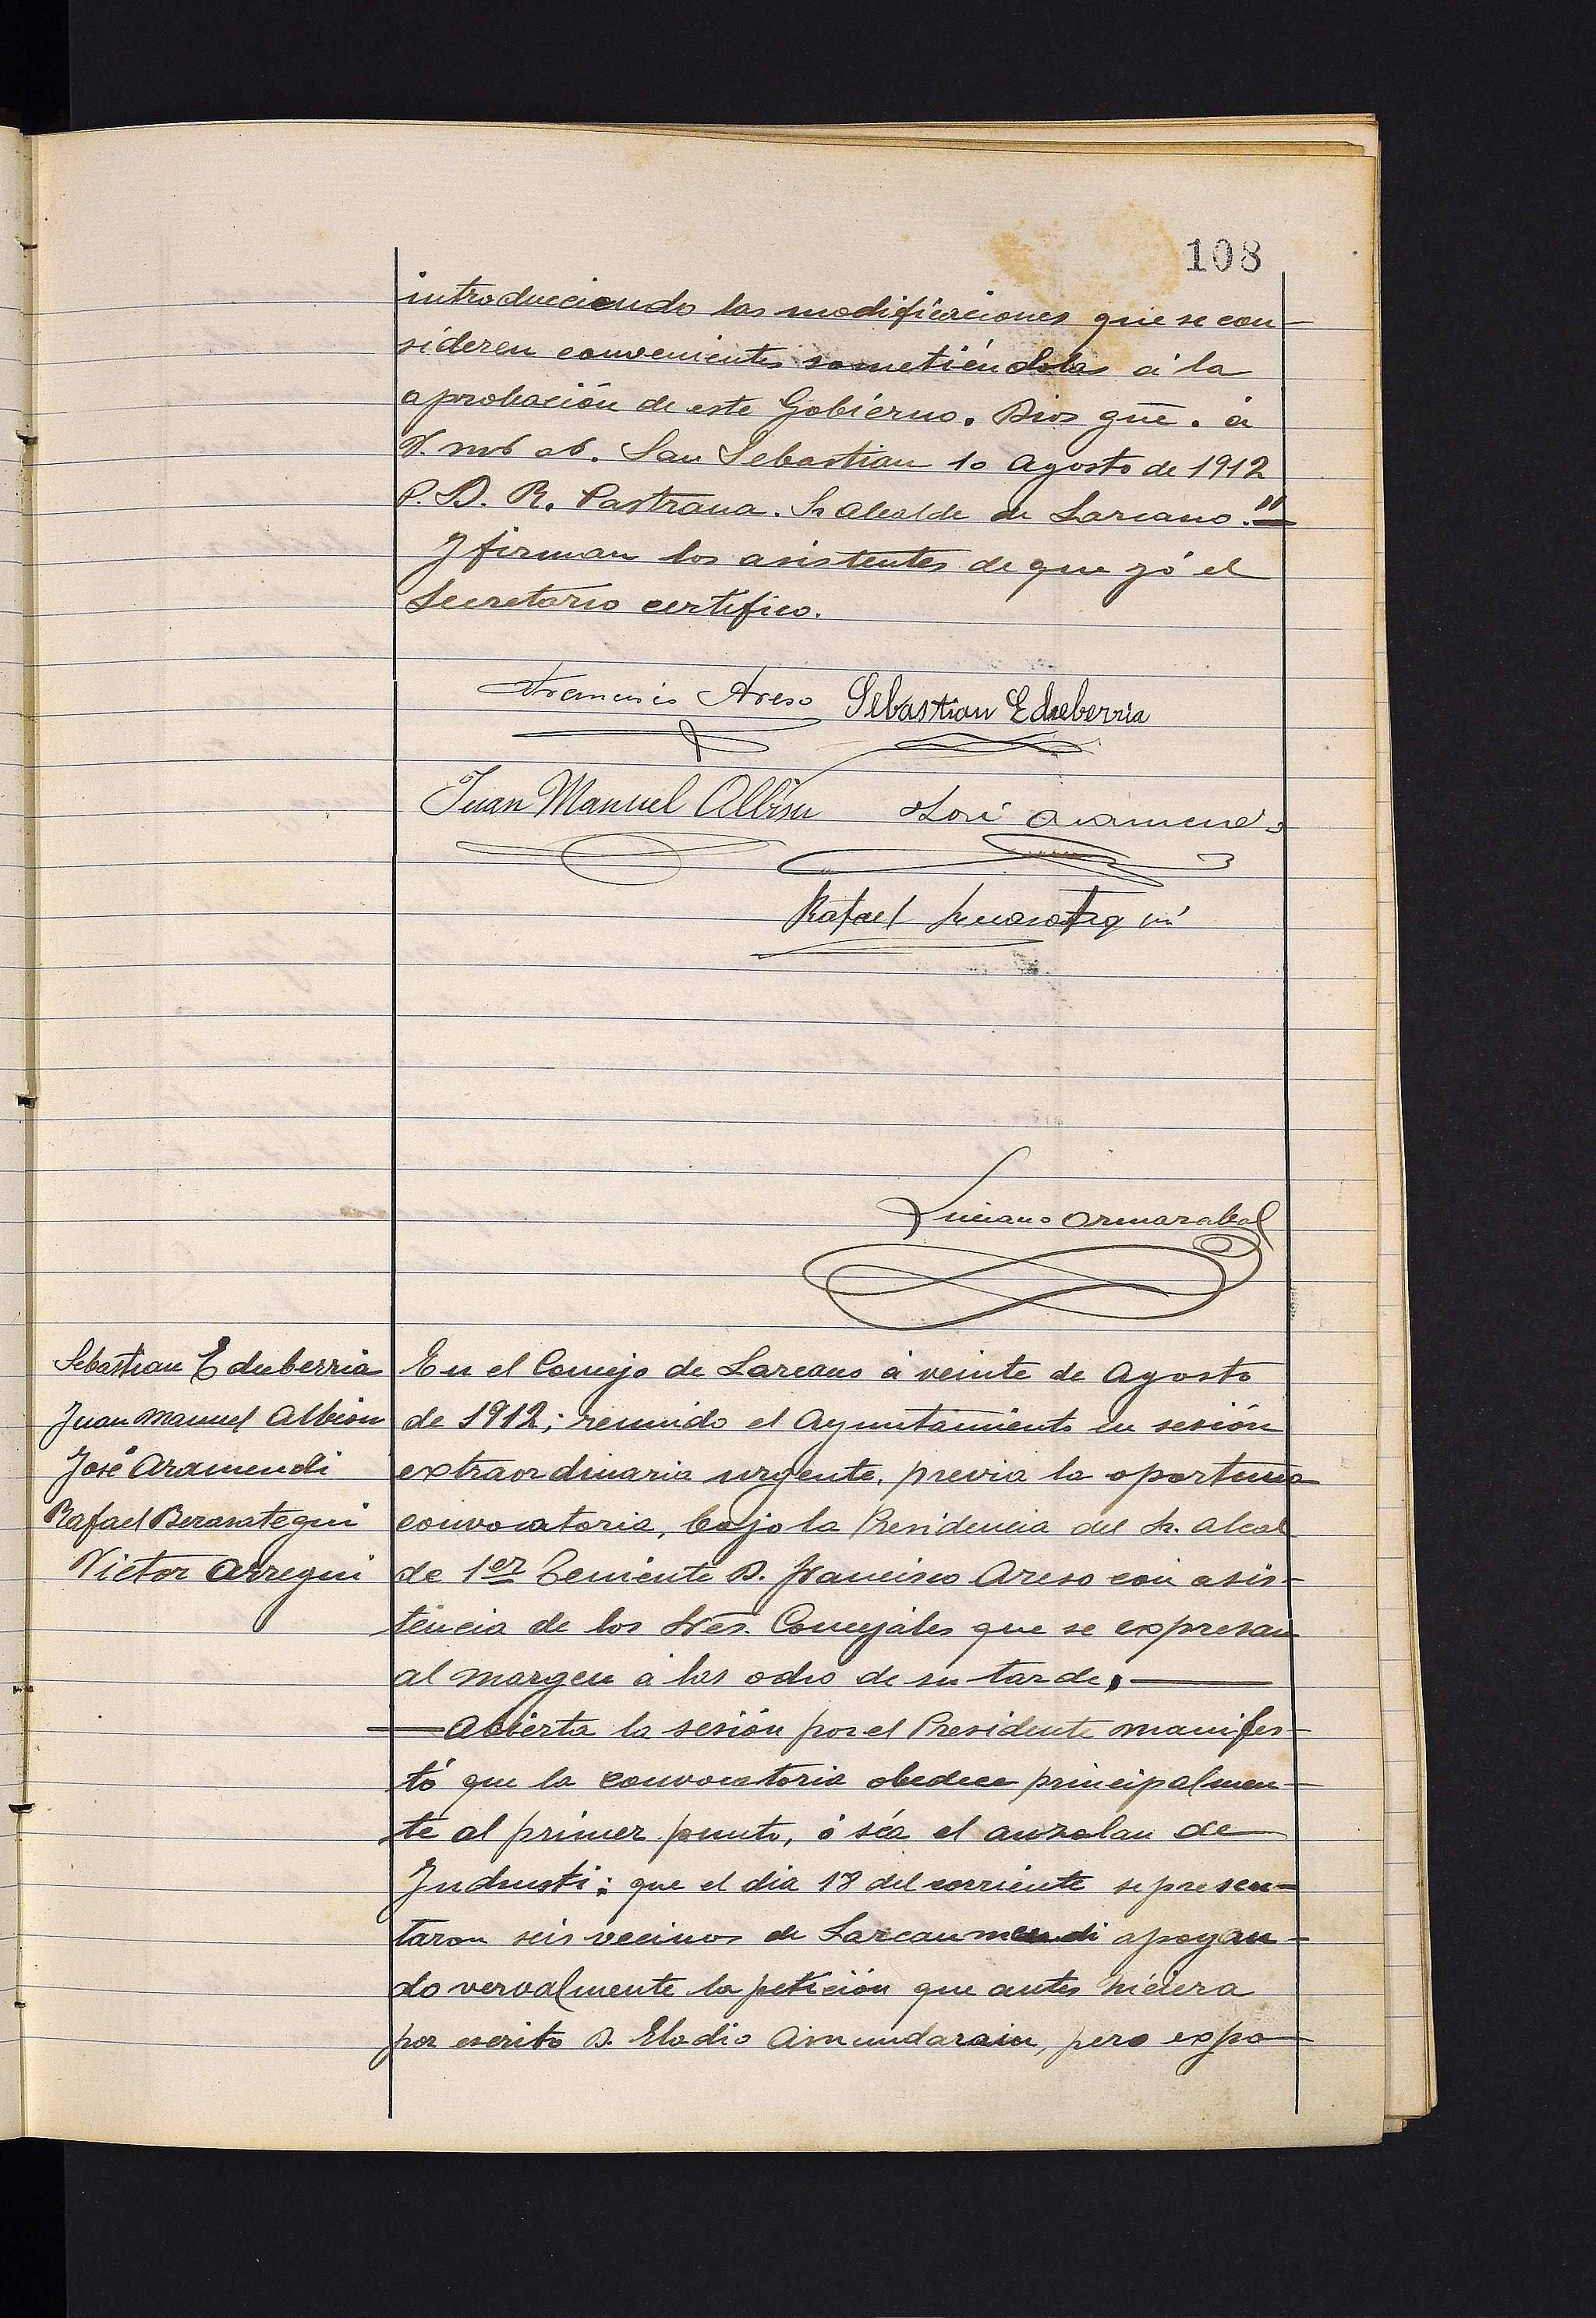 108
introducciendo las modificaciones que se con-
sideren convenientes sometiéndolas á la
aprobación de este Gobierno. Dios gûe. á
V. ms as. San Sebastian 10 Agosto de 1912
P.D. R. Pastrana. Sr Alcalde de Larcano."
Y firman los asistentes de que yó el
Secretario certifico.
Francisco Areso Sebastian Echeberria
Juan Manuel Albisu José Aramendi
Rafael
Luciano Ormazabal
Sebastian Echeberria
Juan Manuel Albisu
José Aramendi
Rafael Berasategui
Victor Arregui
En el Concejo de Larcano á veinte de Agosto
de 1912; reunido el Ayuntamiento en sesión
extraordinaria urgente, previa la oportuna
convocatoria, bajo la Presidencia del Sr. Alcal
de 1er Teniente D. Francisco Areso con asis-
tencia de los Sres. Concejales que se expresan
al margen á las ocho de su tarde.
Abierta la sesión por el Presidente manifes-
tó que la convocatoria obedece principalmen-
te al primer punto, ó séa el auzolan de
Industi: que el dia 18 del corriente se presen-
taron seis vecinos de Larcaumendi apoyan-
do vervalmente la petición que antes hiciera
por escrito D. Eladio Amundarain, pero expo